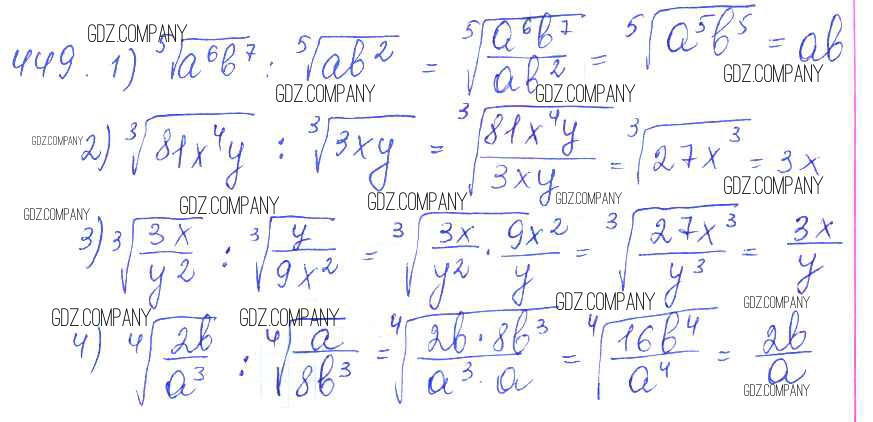 GDZ.COMPANY
449. 1) ⁵√(a⁶b⁷) : ⁵√(ab²) = ⁵√(a⁶b⁷/ab²) = ⁵√(a⁵b⁵) = ab
GDZ.COMPANY GDZ.COMPANY GDZ.COMPANY
GDZ.COMPANY 2) ³√(81x⁴y) : ³√(3xy) = ³√(81x⁴y/3xy) = ³√(27x³) = 3x
GDZ.COMPANY GDZ.COMPANY GDZ.COMPANY GDZ.COMPANY GDZ.COMPANY
3) ³√(3x/y²) : ³√(y/9x²) = ³√(3x/y² · 9x²/y) = ³√(27x³/y³) = 3x/y
GDZ.COMPANY GDZ.COMPANY GDZ.COMPANY GDZ.COMPANY
4) ⁴√(2b/a³) : ⁴√(a/8b³) = ⁴√(2b · 8b³/a³ · a) = ⁴√(16b⁴/a⁴) = 2b/a
GDZ.COMPANY